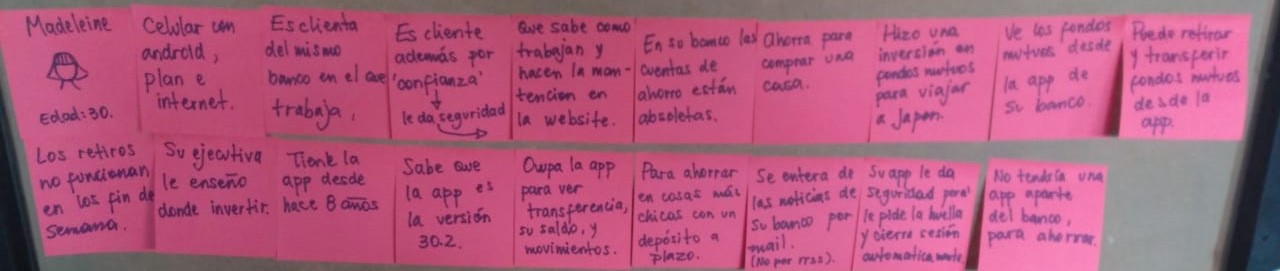 Madeleine
Edad: 30.
Celular con
android,
plan e
internet.
Es clienta
del mismo
banco en el que
trabaja.
Es cliente
además por
'confianza'
le da seguridad
Que sabe como
trabajan y
hacen la man-
tencion en
la website.
En su banco las
cuentas de
ahorro están
obsoletas.
Ahorra para
comprar una
casa.
Hizo una
inversión en
fondos mutuos
para viajar
a Japon.
Ve los fondos
mutuos desde
la app de
su banco.
Puede retirar
y transferir
fondos mutuos
desde la
app.
Los retiros
no funcionan
en los fin de
semana.
Su ejecutiva
le enseño
donde invertir.
Tiene la
app desde
hace 8 años
Sabe que
la app es
la versión
30.2.
Ocupa la app
para ver
transferencia,
su saldo, y
movimientos.
Para ahorrar
en cosas más
chicas con un
depósito a
plazo.
Se entera de
las noticias de
su banco por
mail.
(No por rrss).
Su app le da
seguridad porq'
le pide la huella
y cierra sesión
automaticamente
No tendría una
app aparte
del banco,
para ahorrar.